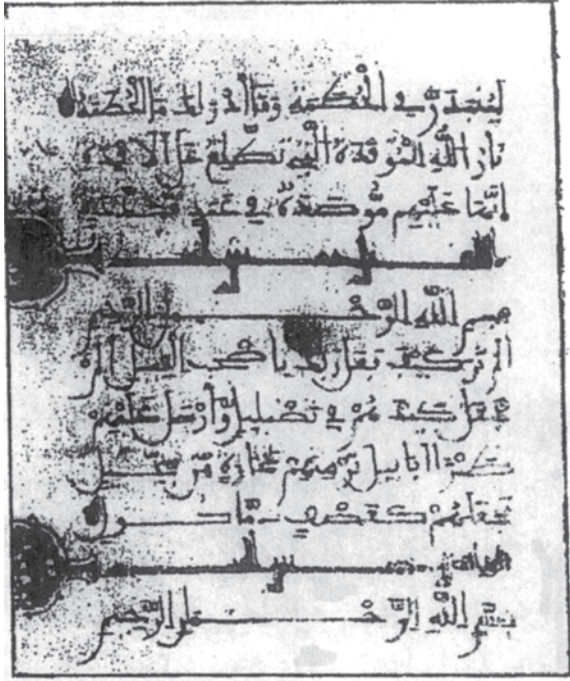 لَيُنۢبَذَنَّ فِي الْحُطَمَةِ وَمَا أَدْرَاكَ مَا الْحُطَمَةُ
نَارُ اللَّهِ الْمُوقَدَةُ الَّتِي تَطَّلِعُ عَلَى الْأَفْئِدَةِ
إِنَّهَا عَلَيْهِم مُّؤْصَدَةٌ فِي عَمَدٍ مُّمَدَّدَةٍ
بِسْمِ اللَّهِ الرَّحْمَنِ الرَّحِيمِ
أَلَمْ تَرَ كَيْفَ فَعَلَ رَبُّكَ بِأَصْحَبِ الْفِيلِ أَلَمْ
يَجْعَلْ كَيْدَهُمْ فِي تَضْلِيلٍ وَأَرْسَلَ عَلَيْهِمْ
طَيْرًا أَبَابِيلَ تَرْمِيهِم بِحِجَارَةٍ مِّن سِجِّيلٍ
فَجَعَلَهُمْ كَعَصْفٍ مَّأْكُولٍ
بِسْمِ اللَّهِ الرَّحْمَنِ الرَّحِيمِ